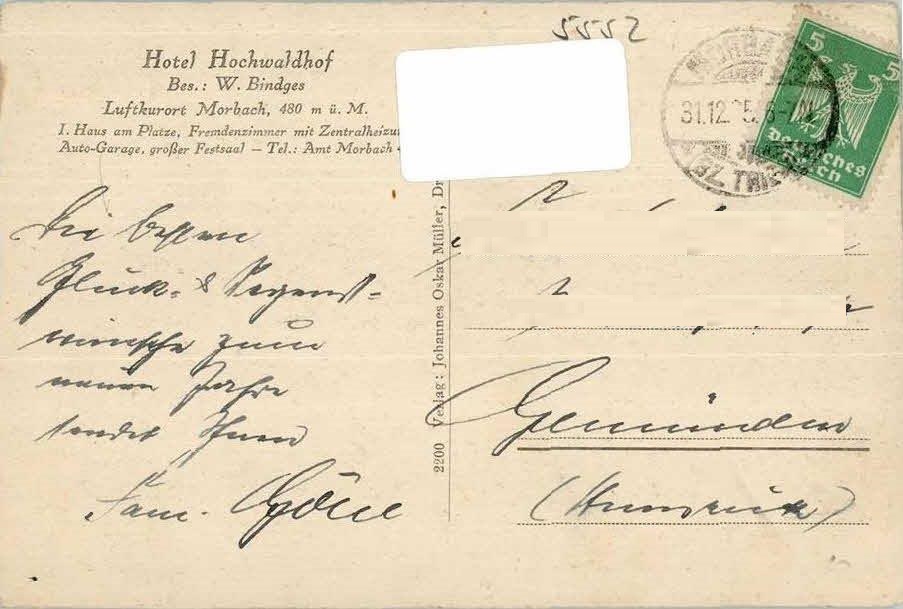 5552
Hotel Hochwaldhof
Bes.: W. Bindges
Luftkurort Morbach, 480 m ü. M.
I. Haus am Platze, Fremdenzimmer mit Zentralheizu
Auto-Garage, großer Festsaal – Tel.: Amt Morbach
Die besten
Glück- & Segens-
wünsche zum
neuen Jahre
sendet Ihnen
Fam.
2200 Verlag: Johannes Oskar Müller, Dr
31.12. 5. 6-7N
(BZ. TRIER)
5 5
Deutsches
Reich
Gemünden
(Hunsrück)